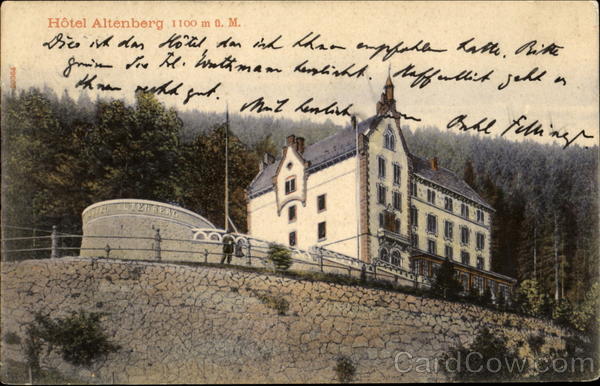 Hôtel Altenberg 1100 m ü. M.
Dies ist das Hôtel, das ich Ihnen empfohlen hatte. Bitte
grüssen Sie Frl. herzlichst. Hoffentlich geht es
Ihnen recht gut. Mit herzlich
HOTEL ALTENBERG
CardCow.com